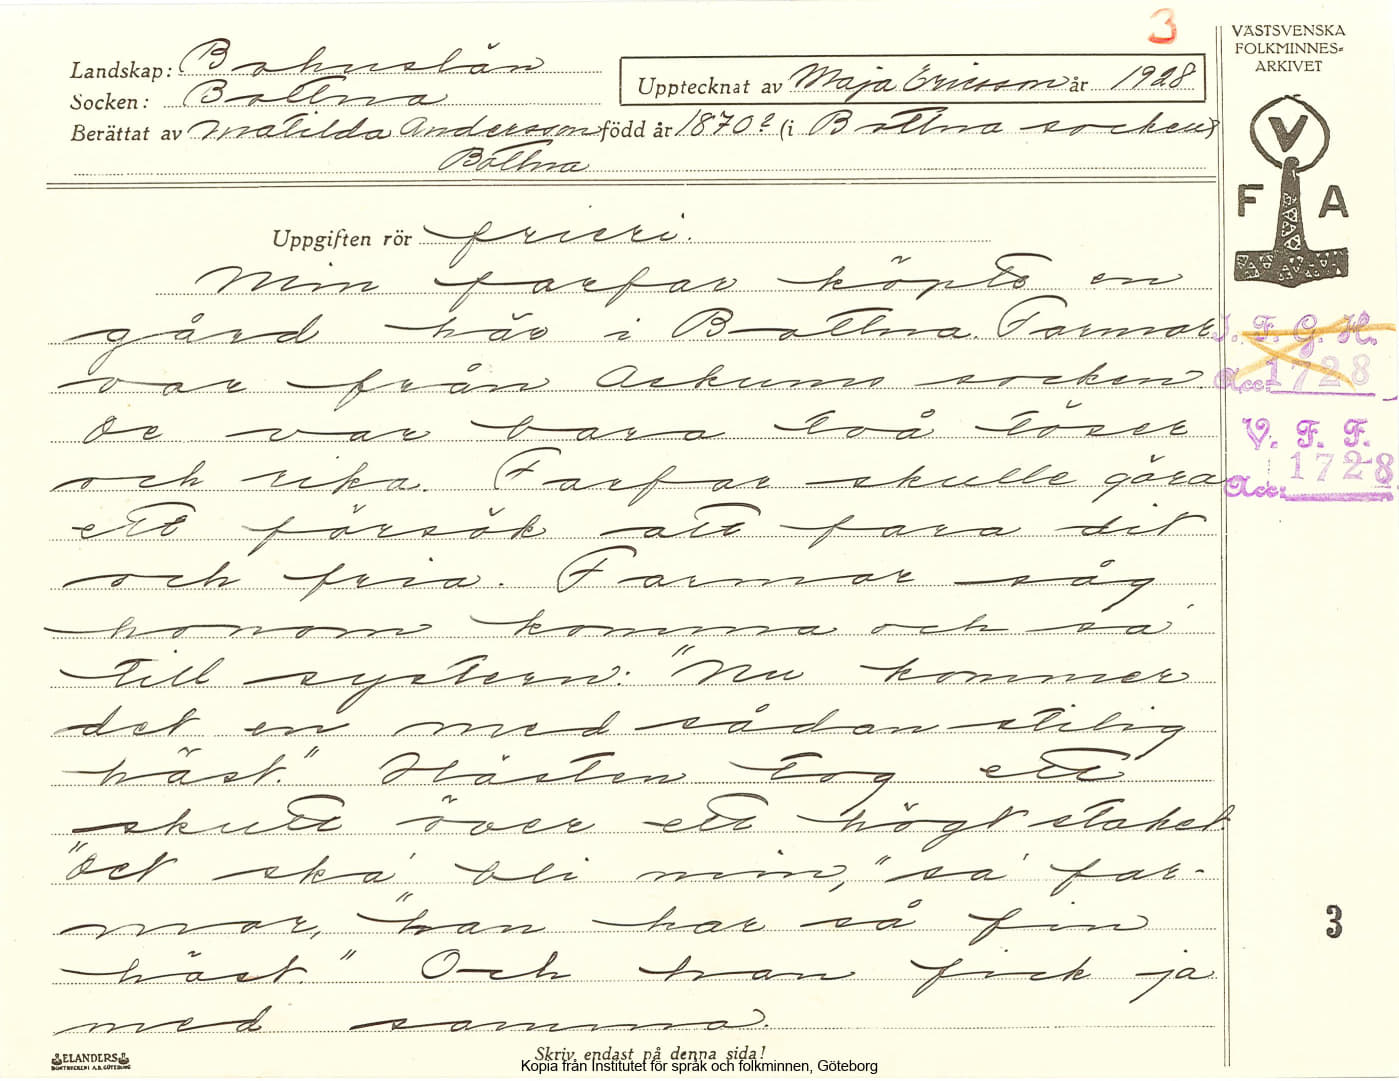 3
VÄSTSVENSKA
FOLKMINNES=
ARKIVET
Landskap: Bohuslän
Upptecknat av Maja Ericsson år 1928
Socken: Bottna
Berättat av Matilda Andersson född år 1870? (i Bottna socken)
Bottna
V
F A
Uppgiften rör frieri.
Min farfar köpte en
gård här i Bottna. Farmor
var från Askums socken.
De var bara två töser
och rika. Farfar skulle göra
ett försök att fara dit
och fria. Farmor såg
honom komma och sa'
till systern: "Nu kommer
det en med sådan stilig
häst." Hästen tog ett
skutt över ett högt staket.
"Det ska' bli min," sa' far-
mor, "han har så fin
häst." Och han fick ja
med samma.
I. F. G. H.
Acc: 1728
V. F. F.
Acc: 1728
3
ELANDERS
BOKTRYCKERI A.B. GÖTEBORG
Skriv endast på denna sida!
Kopia från Institutet för språk och folkminnen, Göteborg